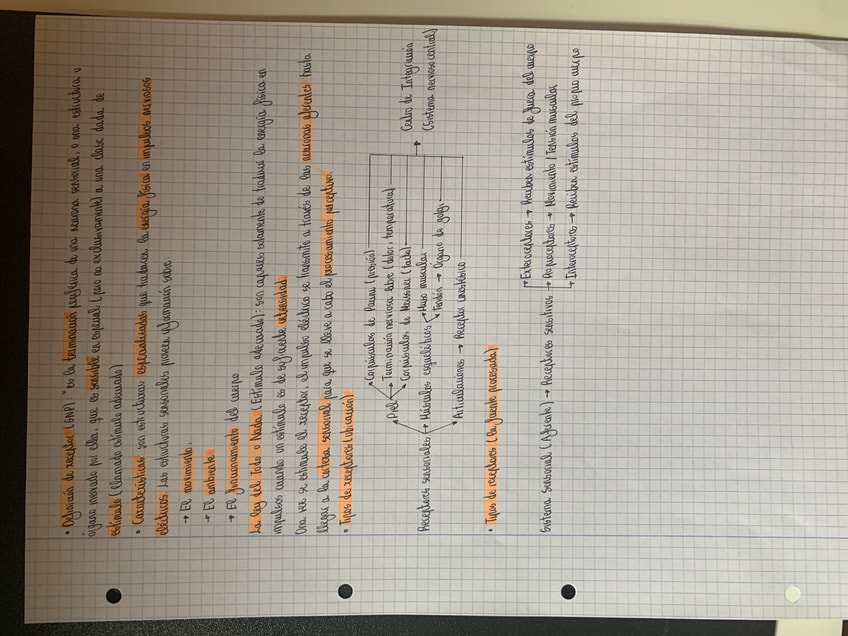 • Definición de receptor (SNP): "es la terminación periférica de una neurona sensorial, o una estructura u
órgano inervado por ella, que es sensible en especial (pero no exclusivamente) a una clase dada de
estímulo (llamado estímulo adecuado)
• Características: son estructuras especializadas que traducen la energía física en impulsos nerviosos
eléctricos. Las estructuras sensoriales proveen información sobre
→ El movimiento.
→ El ambiente
→ El funcionamiento del cuerpo
La ley del Todo o Nada (Estímulo adecuado): son capaces solamente de traducir la energía física en
impulsos cuando un estímulo es de suficiente intensidad.
Una vez se estimula el receptor, el impulso eléctrico se transmite a través de las neuronas aferentes hasta
llegar a la corteza sensorial para que se lleve a cabo el procesamiento perceptivo.
• Tipos de receptores (ubicación)
Corpúsculos de Pacini (presión)
Piel
Terminación nerviosa libre (dolor, temperatura)
Corpúsculos de Meissner (tacto)
Receptores sensoriales → Músculos esqueléticos
Huso muscular
Tendón → Órgano de golgi
Articulaciones → Receptor cinestésico
→ Centro de Integración
(Sistema nervioso central)
• Tipos de receptores (la fuente procesada)
→ Exteroceptores → Reciben estímulos de fuera del cuerpo
Sistema Sensorial (Aferente) → Receptores sensitivos → Propioceptores → Movimiento / Tensión muscular
→ Interoceptores → Reciben estímulos del propio cuerpo